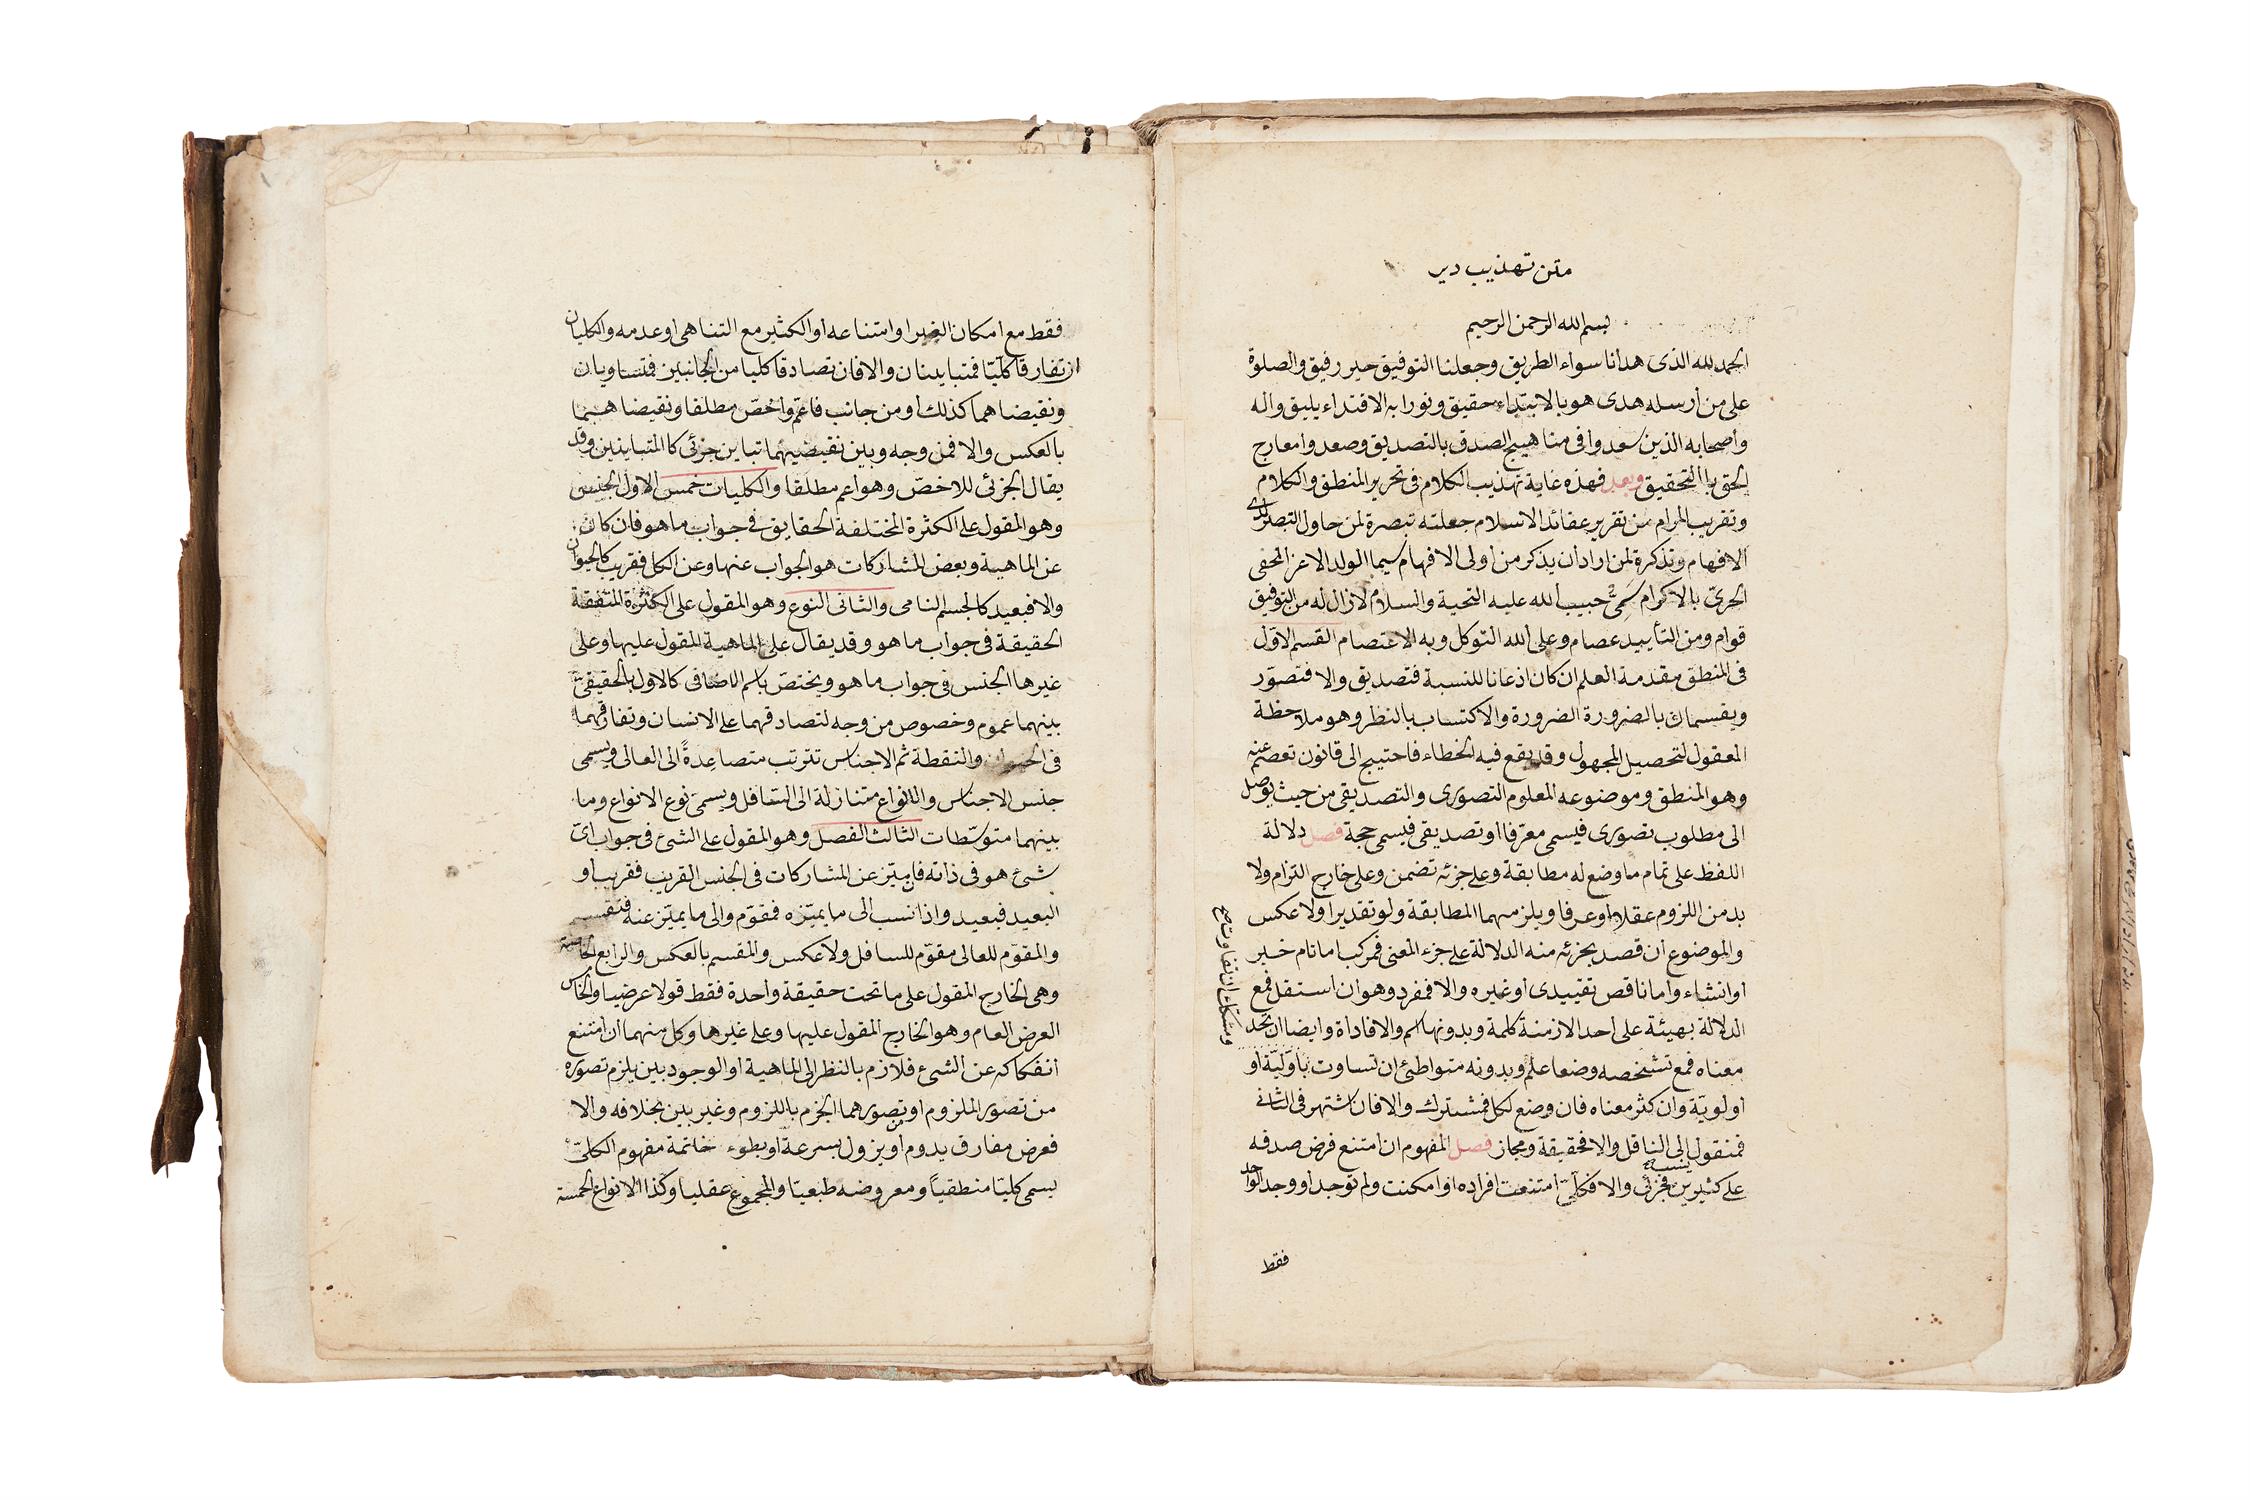 متن تهذيب دير
بسم الله الرحمن الرحيم
الحمد لله الذى هدانا سواء الطريق وجعلنا التوفيق خير رفيق والصلوة
على من ارسله هدى هو بالاهتداء حقيق ونورا به الاقتداء يليق واله
واصحابه الذين سعدوا فى مناهيج الصدق بالتصديق وصعدوا معارج
الحق باالتحقيق وبعد فهذه غاية تهذيب الكلام فى تحرير المنطق والكلام
وتقريب المرام من تقرير عقائد الاسلام جعلته تبصرة لمن حاول التبصر لدى
الافهام وتذكرة لمن اراد ان يذكر من اولى الافهام سيما الولد الاعز الحفى
الحرىّ بالاكرام سمىّ حبيب الله عليه التحية والسلام لازال له من التوفيق
قوام ومن التأييد عصام وعلى الله التوكل وبه الاعتصام القسم الاوّل
فى المنطق مقدمة العلم ان كان اذعانا للنسبة فتصديق والا فتصوّر
ويقسمان بالضرورة الضرورة والاكتساب بالنظر وهو ملاحظة
المعقول لتحصيل المجهول وقد يقع فيه الخطاء فاحتيج الى قانون تعصم عنه
وهو المنطق وموضوعه المعلوم التصورى والتصديقى من حيث يوصل
الى مطلوب تصورى فيسمى معرّفا او تصديقى فيسمى حجة فصل دلالة
اللفظ على تمام ما وضع له مطابقة وعلى جزئه تضمن وعلى خارج التزام ولا
بد من اللزوم عقلا او عرفا ويلزمهما المطابقة ولو تقديرا ولا عكس
والموضوع ان قصد بجزئه منه الدلالة على جزء المعنى فمركب اما تام خبر
او انشاء واما ناقص تقييدى او غيره والا فمفرد وهو ان استقل فمع
الدلالة بهيئة على احد الازمنة كلمة وبدونها اسم والا فاداة وايضا ان تحد
معناه فمع تشخصه وضعا علم وبدونه متواطئ ان تساوت باوّليّة او
اولويّة وان كثر معناه فان وضع لكل فمشترك والا فان اشتهر فى الثانى
فمنقول الى الناقل والا فحقيقة ومجاز فصل المفهوم ان امتنع فرض صدقه
على كثيرين فجزئى والا فكلّى امتنعت افراده او امكنت ولم توجد او وجد الواحد
ينسب
ومشكك ان تفاوت صح
فقط
فقط مع امكان الغير او امتناعه او الكثير مع التناهى او عدمه والكليان
ان تفارقا كليّا فمتباينان والا فان تصادقا كليا من الجانبين فمتساويان
ونقيضاهما كذلك او من جانب فاعمّ واخصّ مطلقا ونقيضاهما
بالعكس والا فمن وجه وبين نقيضيهما تباين جزئى كالمتباينين وقد
يقال الجزئى للاخصّ وهو اعم مطلقا والكليات خمس الاول الجنس
وهو المقول على الكثرة المختلفة الحقايق فى جواب ما هو فان كان
عن الماهية وبعض المشاركات هو الجواب عنها وعن الكل فقريب كالحيوان
والا فبعيد كالجسم النامى والثانى النوع وهو المقول على الكثرة المتفقة
الحقيقة فى جواب ما هو وقد يقال على الماهية المقول عليها وعلى
غيرها الجنس فى جواب ما هو ويختصّ باسم الاضافى كالاول بالحقيقىّ
بينهما عموم وخصوص من وجه لتصادقهما على الانسان وتفارقهما
فى الحيوان والنقطة ثم الاجناس تترتب متصاعدةً الى العالى ويسمى
جنس الاجناس والانواع متنازلة الى السّافل ويسمى نوع الانواع وما
بينهما متوسّطات الثالث الفصل وهو المقول على الشئ فى جواب اىّ
شئ هو فى ذاته فان ميّز عن المشاركات فى الجنس القريب فقريب او
البعيد فبعيد واذا نسب الى ما يميّزه فمقوّم والى ما يميّز عنه فمقسم
والمقوّم للعالى مقوّم للسافل ولا عكس والمقسم بالعكس والرابع الخاصّة
وهى الخارج المقول على ما تحت حقيقة واحدة فقط قولا عرضيا والخامس
العرض العام وهو الخارج المقول عليها وعلى غيرها وكل منهما ان امتنع
انفكاكه عن الشئ فلازم بالنظر الى الماهية او الوجود بين يلزم تصوره
من تصور الملزوم او من تصورهما الجزم باللزوم وغير بين بخلافه والا
فعرض مفارق يدوم او يزول بسرعة او بطوء خاتمة مفهوم الكلىّ
يسمى كليّا منطقياً ومعروضه طبعيّا والمجموع عقليا وكذا الانواع الخمسة